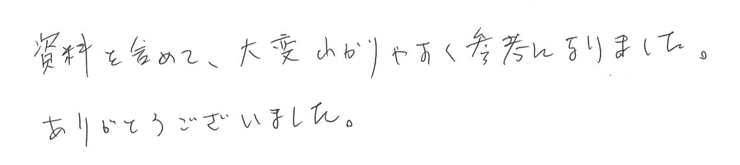 資料を含めて、大変わかりやすく参考になりました。
ありがとうございました。